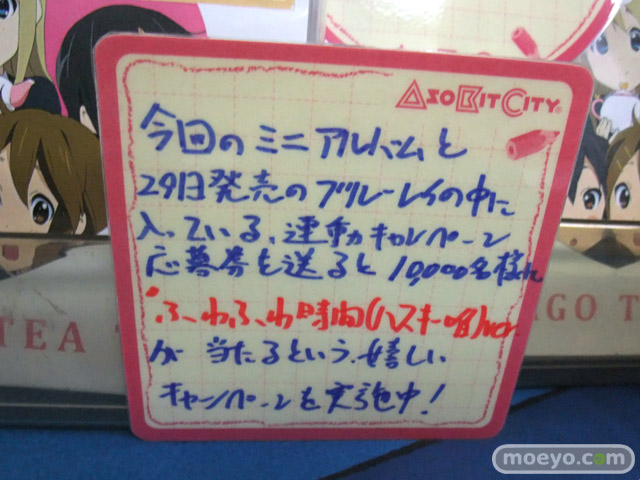 AsoBitCity
今回のミニアルバムと
29日発売のブルーレイの中に
入っている、連動キャンペーン
応募券を送ると10,000名様に
"ふわふわ時間(ハスキー唯)ver."
が当たるという、嬉しい
キャンペーンを実施中!
TEA T
GO T
moeyo.com